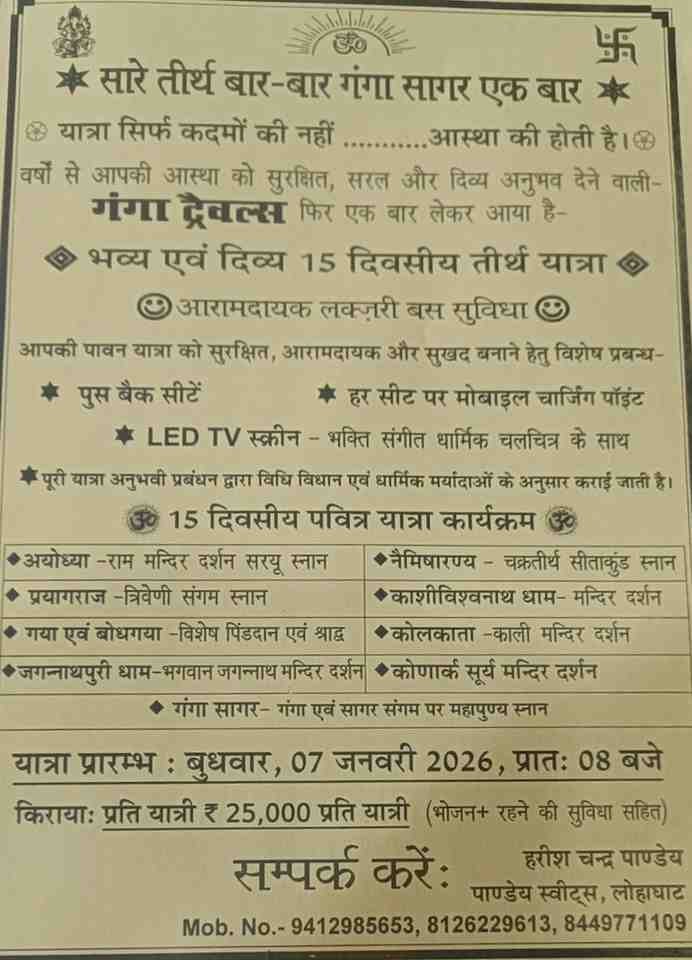 ॐ
सारे तीर्थ बार-बार गंगा सागर एक बार
यात्रा सिर्फ कदमों की नहीं ...........आस्था की होती है।
वर्षों से आपकी आस्था को सुरक्षित, सरल और दिव्य अनुभव देने वाली-
गंगा ट्रैवल्स फिर एक बार लेकर आया है-
भव्य एवं दिव्य 15 दिवसीय तीर्थ यात्रा
आरामदायक लक्ज़री बस सुविधा
आपकी पावन यात्रा को सुरक्षित, आरामदायक और सुखद बनाने हेतु विशेष प्रबन्ध-
पुस बैक सीटें
हर सीट पर मोबाइल चार्जिंग पॉइंट
LED TV स्क्रीन - भक्ति संगीत धार्मिक चलचित्र के साथ
पूरी यात्रा अनुभवी प्रबंधन द्वारा विधि विधान एवं धार्मिक मर्यादाओं के अनुसार कराई जाती है।
ॐ 15 दिवसीय पवित्र यात्रा कार्यक्रम ॐ
अयोध्या -राम मन्दिर दर्शन सरयू स्नान
नैमिषारण्य - चक्रतीर्थ सीताकुंड स्नान
प्रयागराज -त्रिवेणी संगम स्नान
काशीविश्वनाथ धाम- मन्दिर दर्शन
गया एवं बोधगया -विशेष पिंडदान एवं श्राद्ध
कोलकाता -काली मन्दिर दर्शन
जगन्नाथपुरी धाम-भगवान जगन्नाथ मन्दिर दर्शन
कोणार्क सूर्य मन्दिर दर्शन
गंगा सागर- गंगा एवं सागर संगम पर महापुण्य स्नान
यात्रा प्रारम्भ : बुधवार, 07 जनवरी 2026, प्रातः 08 बजे
किरायाः प्रति यात्री ₹ 25,000 प्रति यात्री (भोजन+ रहने की सुविधा सहित)
सम्पर्क करें:
हरीश चन्द्र पाण्डेय
पाण्डेय स्वीट्स, लोहाघाट
Mob. No.- 9412985653, 8126229613, 8449771109